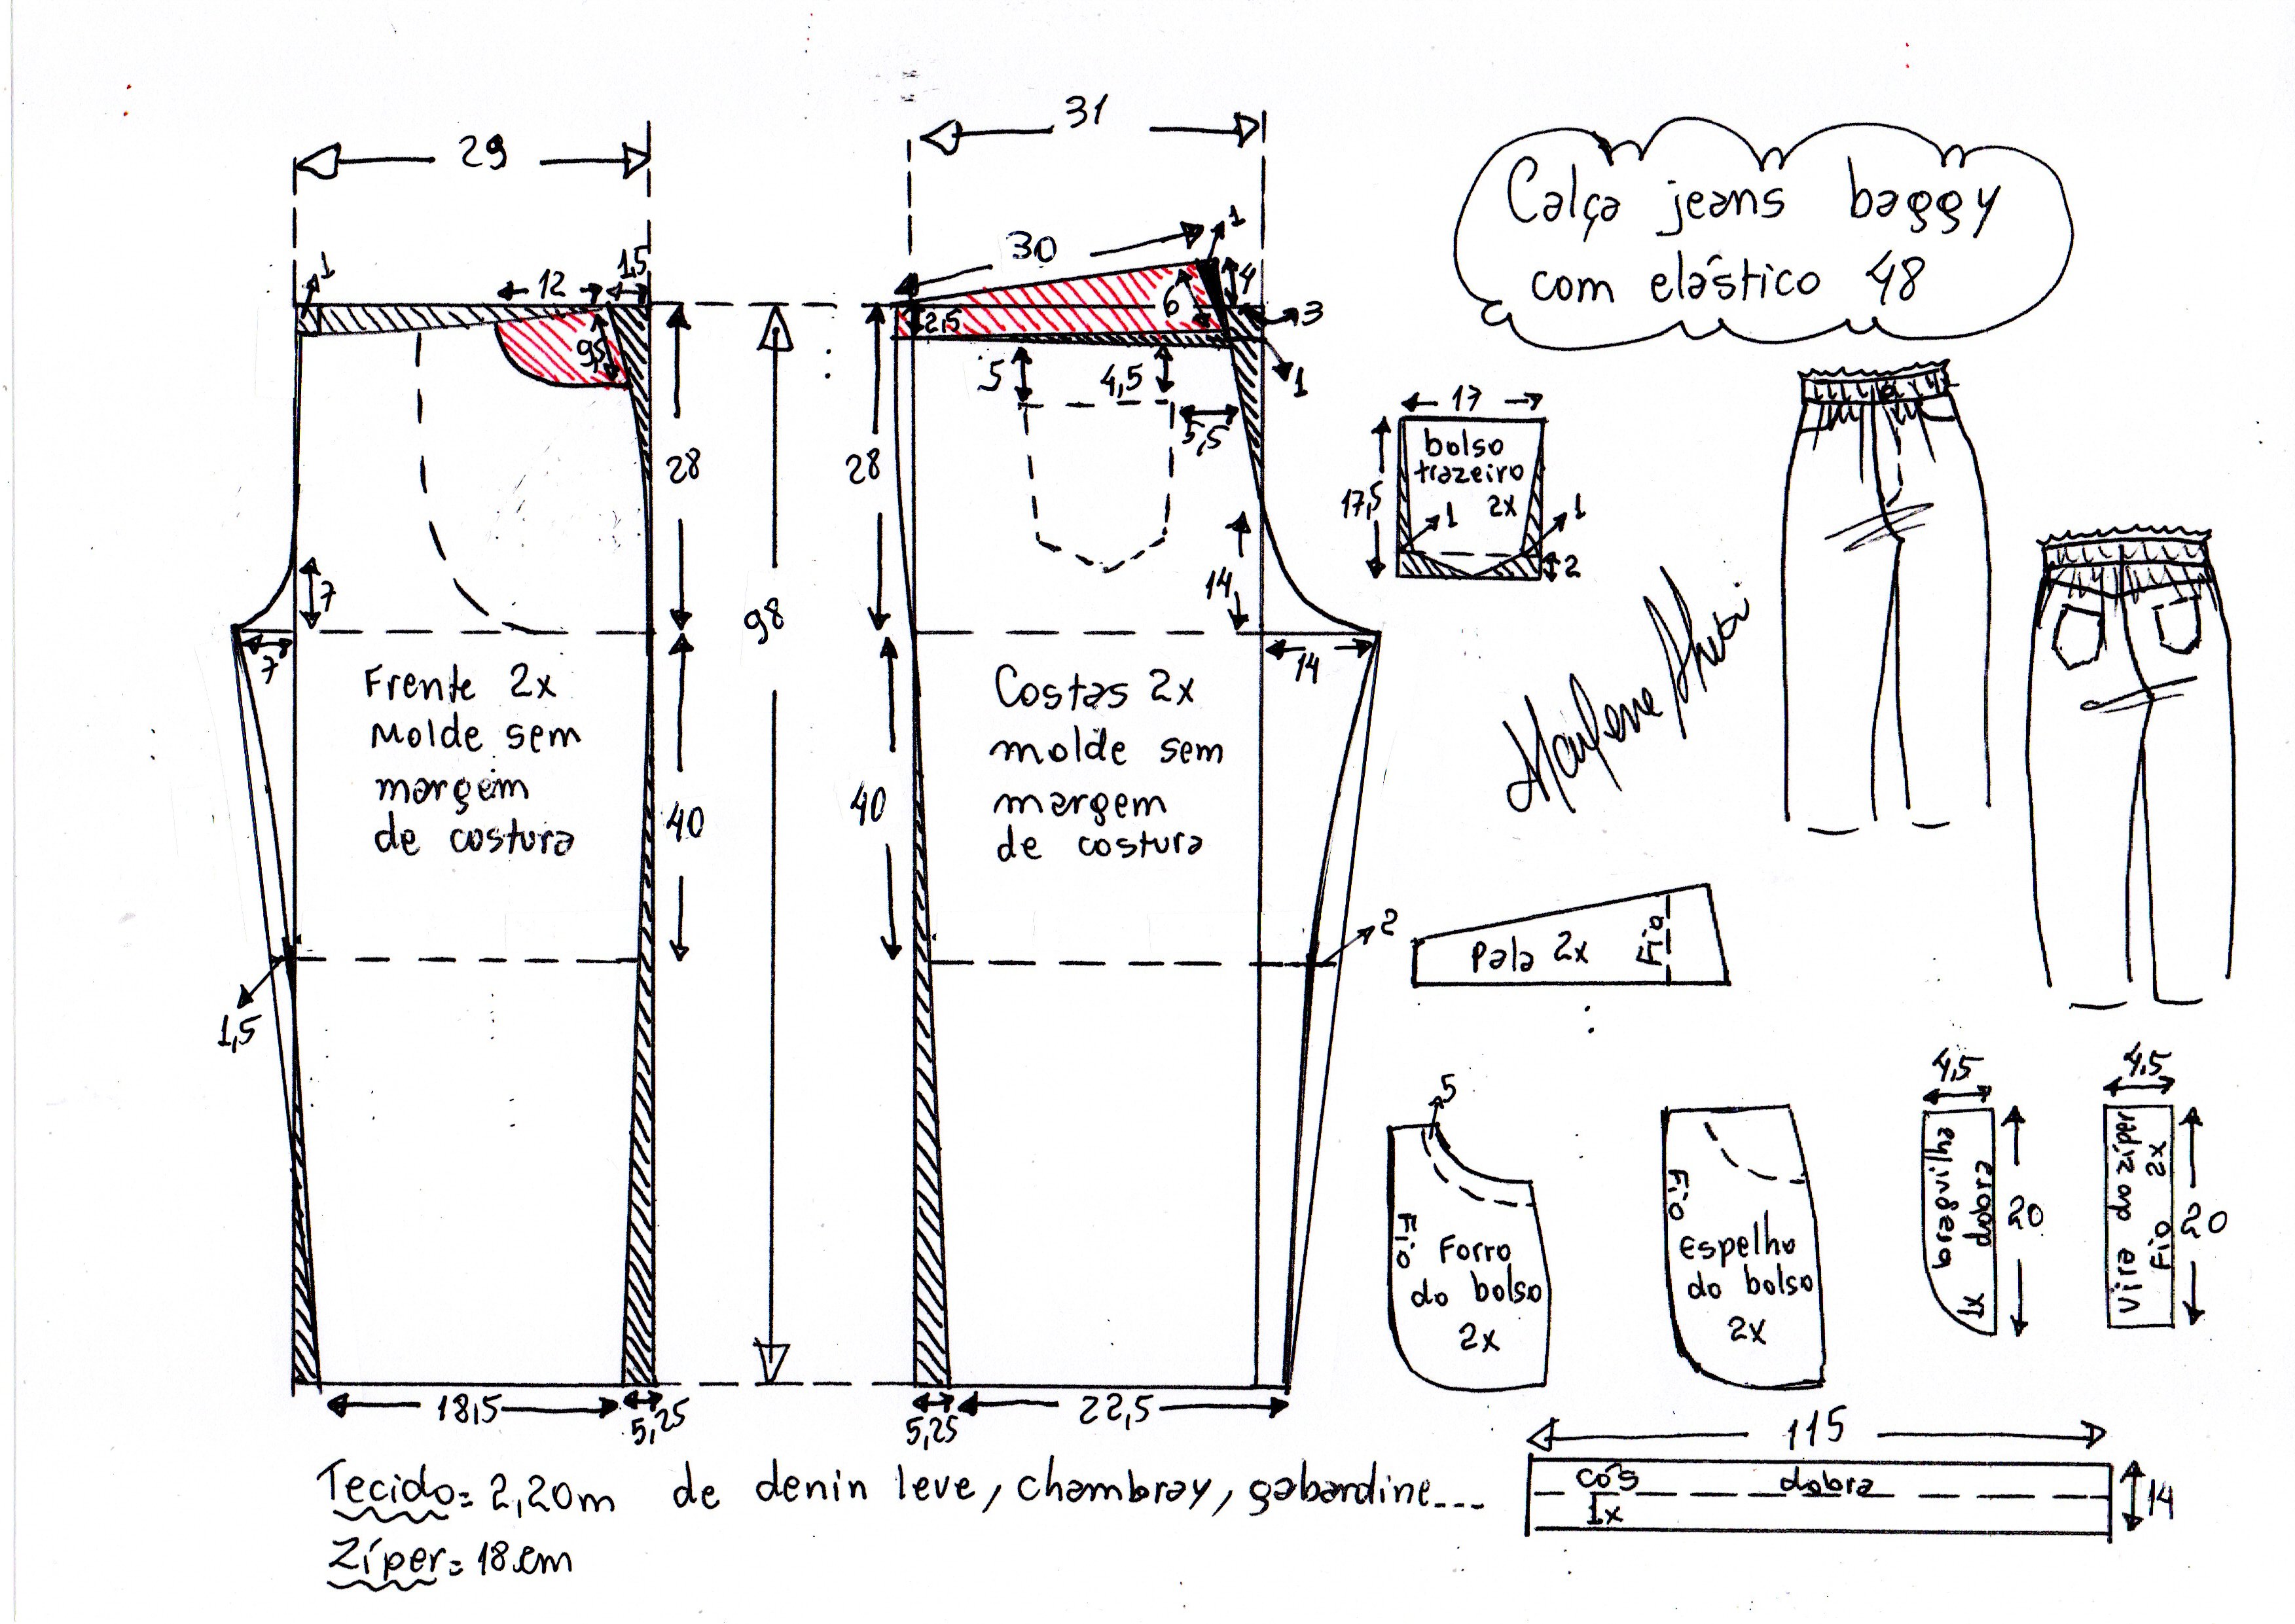 29
31
Calça jeans baggy
com elástico 48
1
12
1,5
30
1
4
6
3
2,5
9,5
5
4,5
1
5,5
28
28
7
7
14
14
98
17
bolso
trazeiro
2x
17,5
1
1
2
Frente 2x
Molde sem
margem
de costura
40
Costas 2x
molde sem
margem
de costura
40
1,5
2
Pala 2x
Fio
18,5
5,25
5,25
22,5
5
Fio
Forro
do bolso
2x
Fio
Espelho
do bolso
2x
4,5
braguilha
dobra
1x
20
4,5
Vira do zíper
Fio 2x
20
115
cós dobra
1x
14
Tecido= 2,20m de denin leve, chambray, gabardine...
Zíper= 18cm